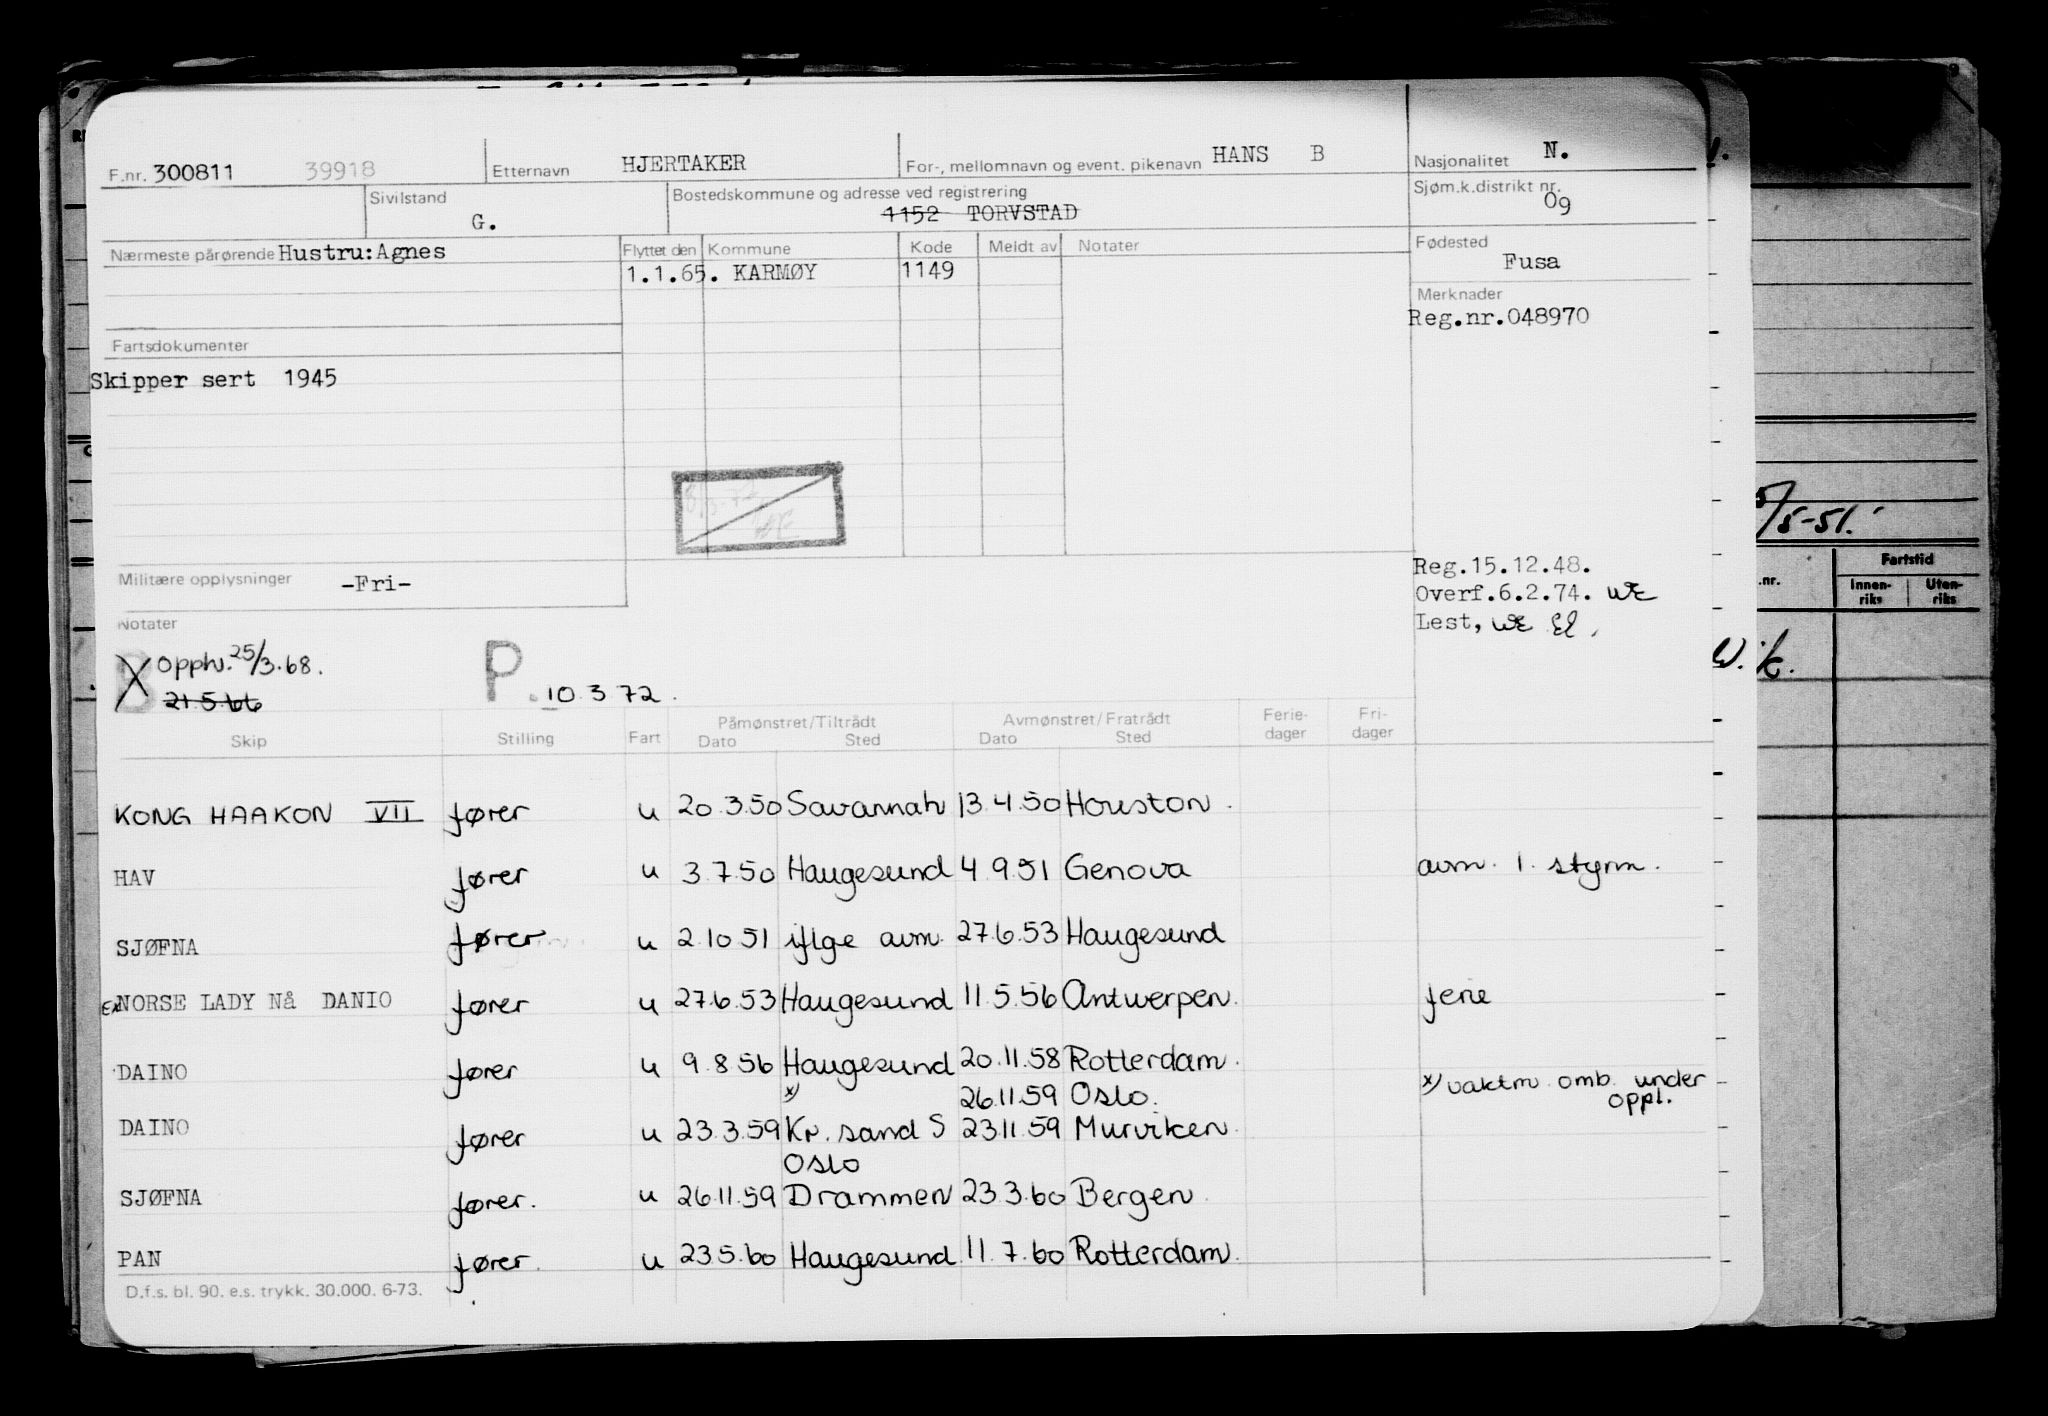 F.nr. 300811 39918 Etternavn HJERTAKER For-, mellomnavn og event. pikenavn HANS B Nasjonalitet N.
Sivilstand G. Bostedskommune og adresse ved registrering 1152 TORVSTAD Sjøm.k.distrikt nr. 09
Nærmeste pårørende Hustru:Agnes Flyttet den Kommune Kode Meldt av Notater Fødested Fusa
1.1.65. KARMØY 1149
Merknader
Reg.nr.048970
Fartsdokumenter
Skipper sert 1945
5/5-51.
Fartstid
.nr. Innen-riks Uten-riks
Militære opplysninger -Fri-
Reg.15.12.48.
Overf.6.2.74. WE
Lest, WE El.
Notater
X Opphv. 25/3.68. P. 10 3 72.
B 21.5.66
W.k.
Påmønstret/Tiltrådt Avmønstret/Fratrådt Ferie-dager Fri-dager
Skip Stilling Fart Dato Sted Dato Sted
KONG HAAKON VII fører u 20.3.50 Savannah 13.4.50 Houston.
HAV fører u 3.7.50 Haugesund 4.9.51 Genova avm. 1. styrm.
SJØFNA fører u 2.10.51 iflge avm. 27.6.53 Haugesund
EX NORSE LADY Nå DANIO fører u 27.6.53 Haugesund 11.5.56 Antwerpen. ferie
DAINO fører u 9.8.56 Haugesund 20.11.58 Rotterdam.
x) 26.11.59 Oslo. x) vaktm. omb. under oppl.
DAINO fører u 23.3.59 Kr.sand S 23.11.59 Murviken.
Oslo
SJØFNA fører. u 26.11.59 Drammen 23.3.60 Bergen.
PAN fører. u 23.5.60 Haugesund. 11.7.60 Rotterdam.
D.f.s. bl. 90. e.s. trykk. 30.000. 6-73.